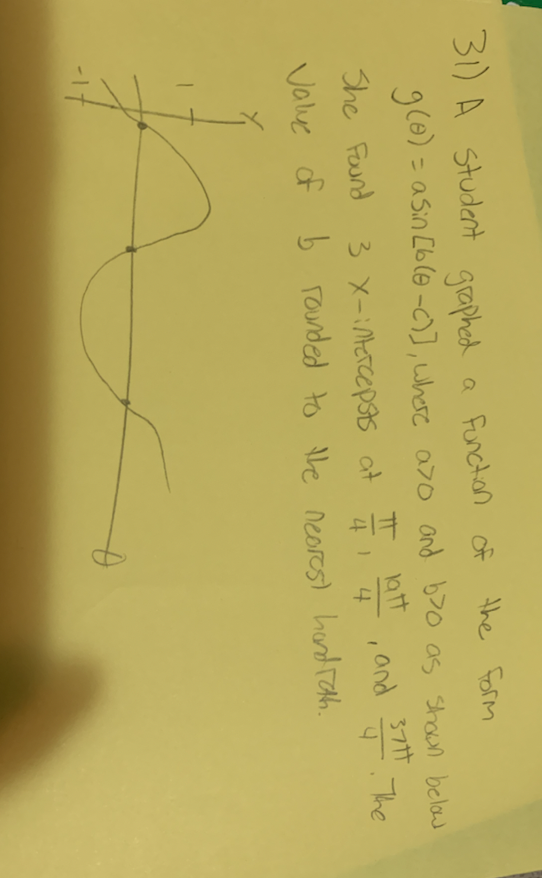 31) A student graphed a function of the form
g(θ) = asin[b(θ-c)], where a>0 and b>0 as shown below
She found 3 x-intercepsts at π/4, 19π/4, and 37π/4. The
value of b rounded to the nearest hundredth.
y
1
-1
θ